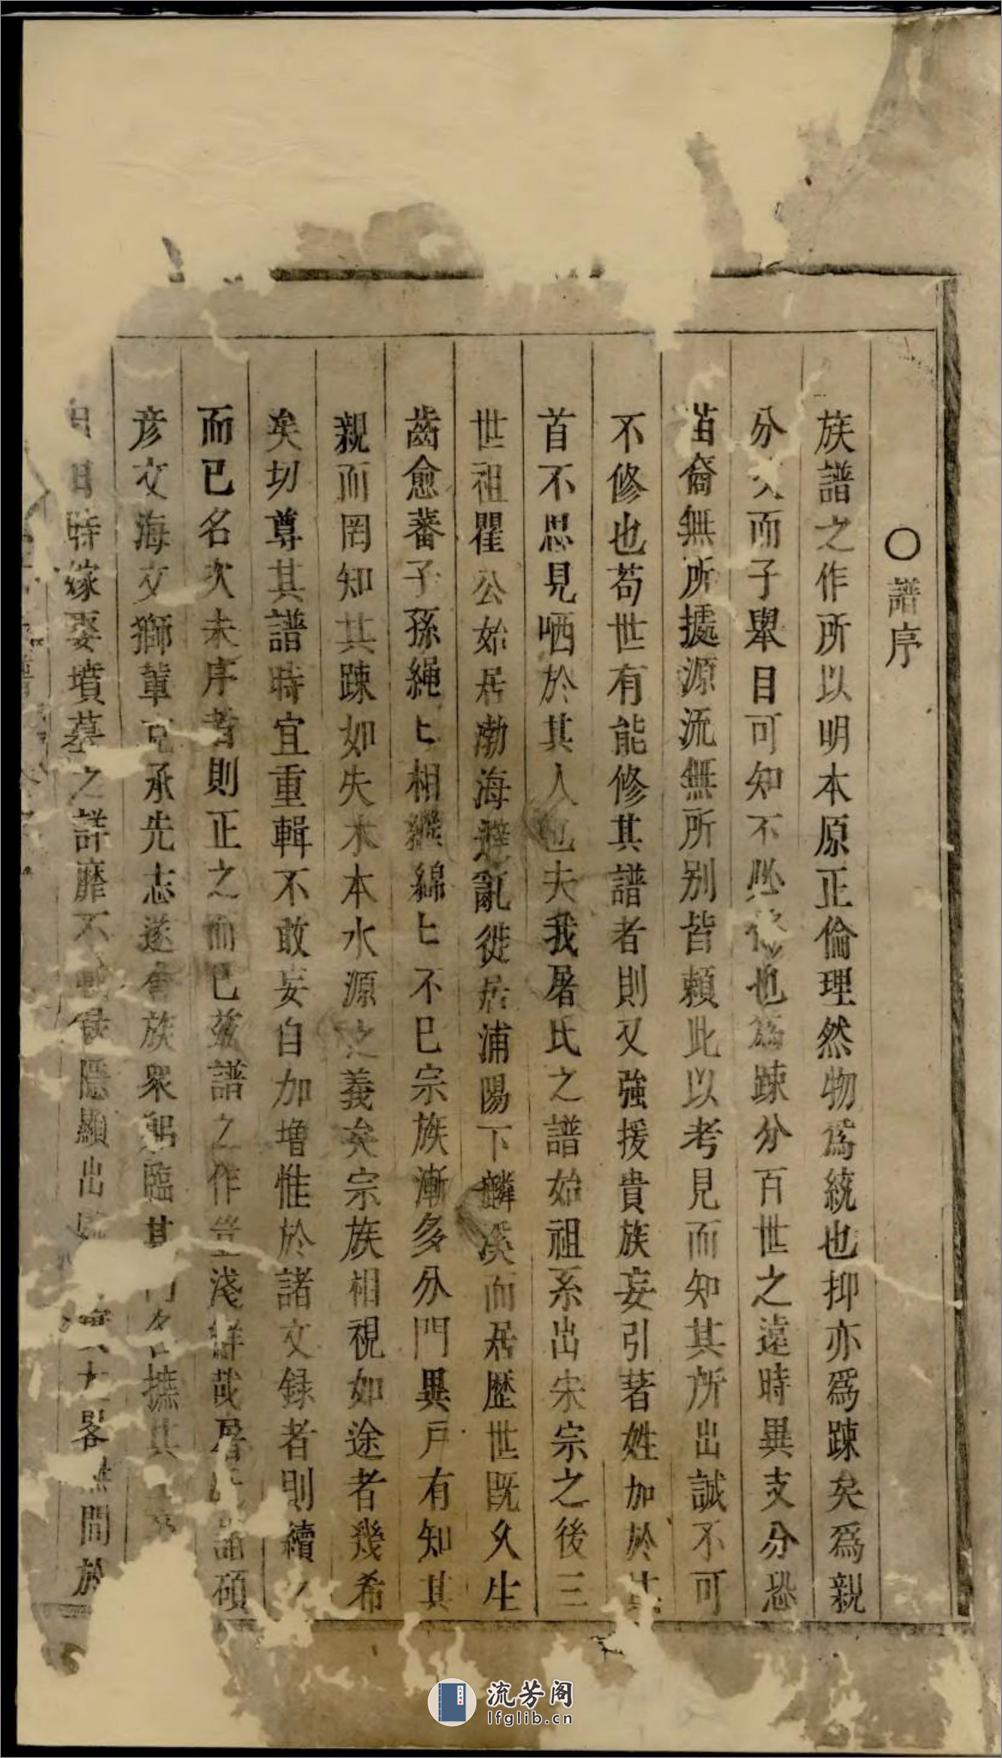 ○譜序
族譜之作所以明本原正倫理然物爲統也抑亦爲踈矣爲親
分 而子舉目可知不必 也爲踈分百世之遠時異支分恐
苗裔無所據源流無所别皆賴此以考見而知其所出誠不可
不修也苟世有能修其譜者則又強援貴族妄引著姓加於其
首不思見哂於其人也夫我屠氏之譜始祖系出宋宗之後三
世祖瞿公始居渤海避亂徙居浦陽下麟溪而居歷世既久生
齒愈蕃子孫繩〻相繼綿〻不已宗族漸多分門異戸有知其
親而罔知其踈如失木本水源之義矣宗族相視如途者幾希
矣切尊其譜時宜重輯不敢妄自加增惟於諸文録者則續
而已名次未序者則正之而已兹譜之作豈淺鮮哉屠 碩
彦文海文獅輩克承先志遂會族衆 臨其 摭其
日時嫁娶墳墓之詳靡不 隱顯出 無間於
流芳阁
lfglib.cn